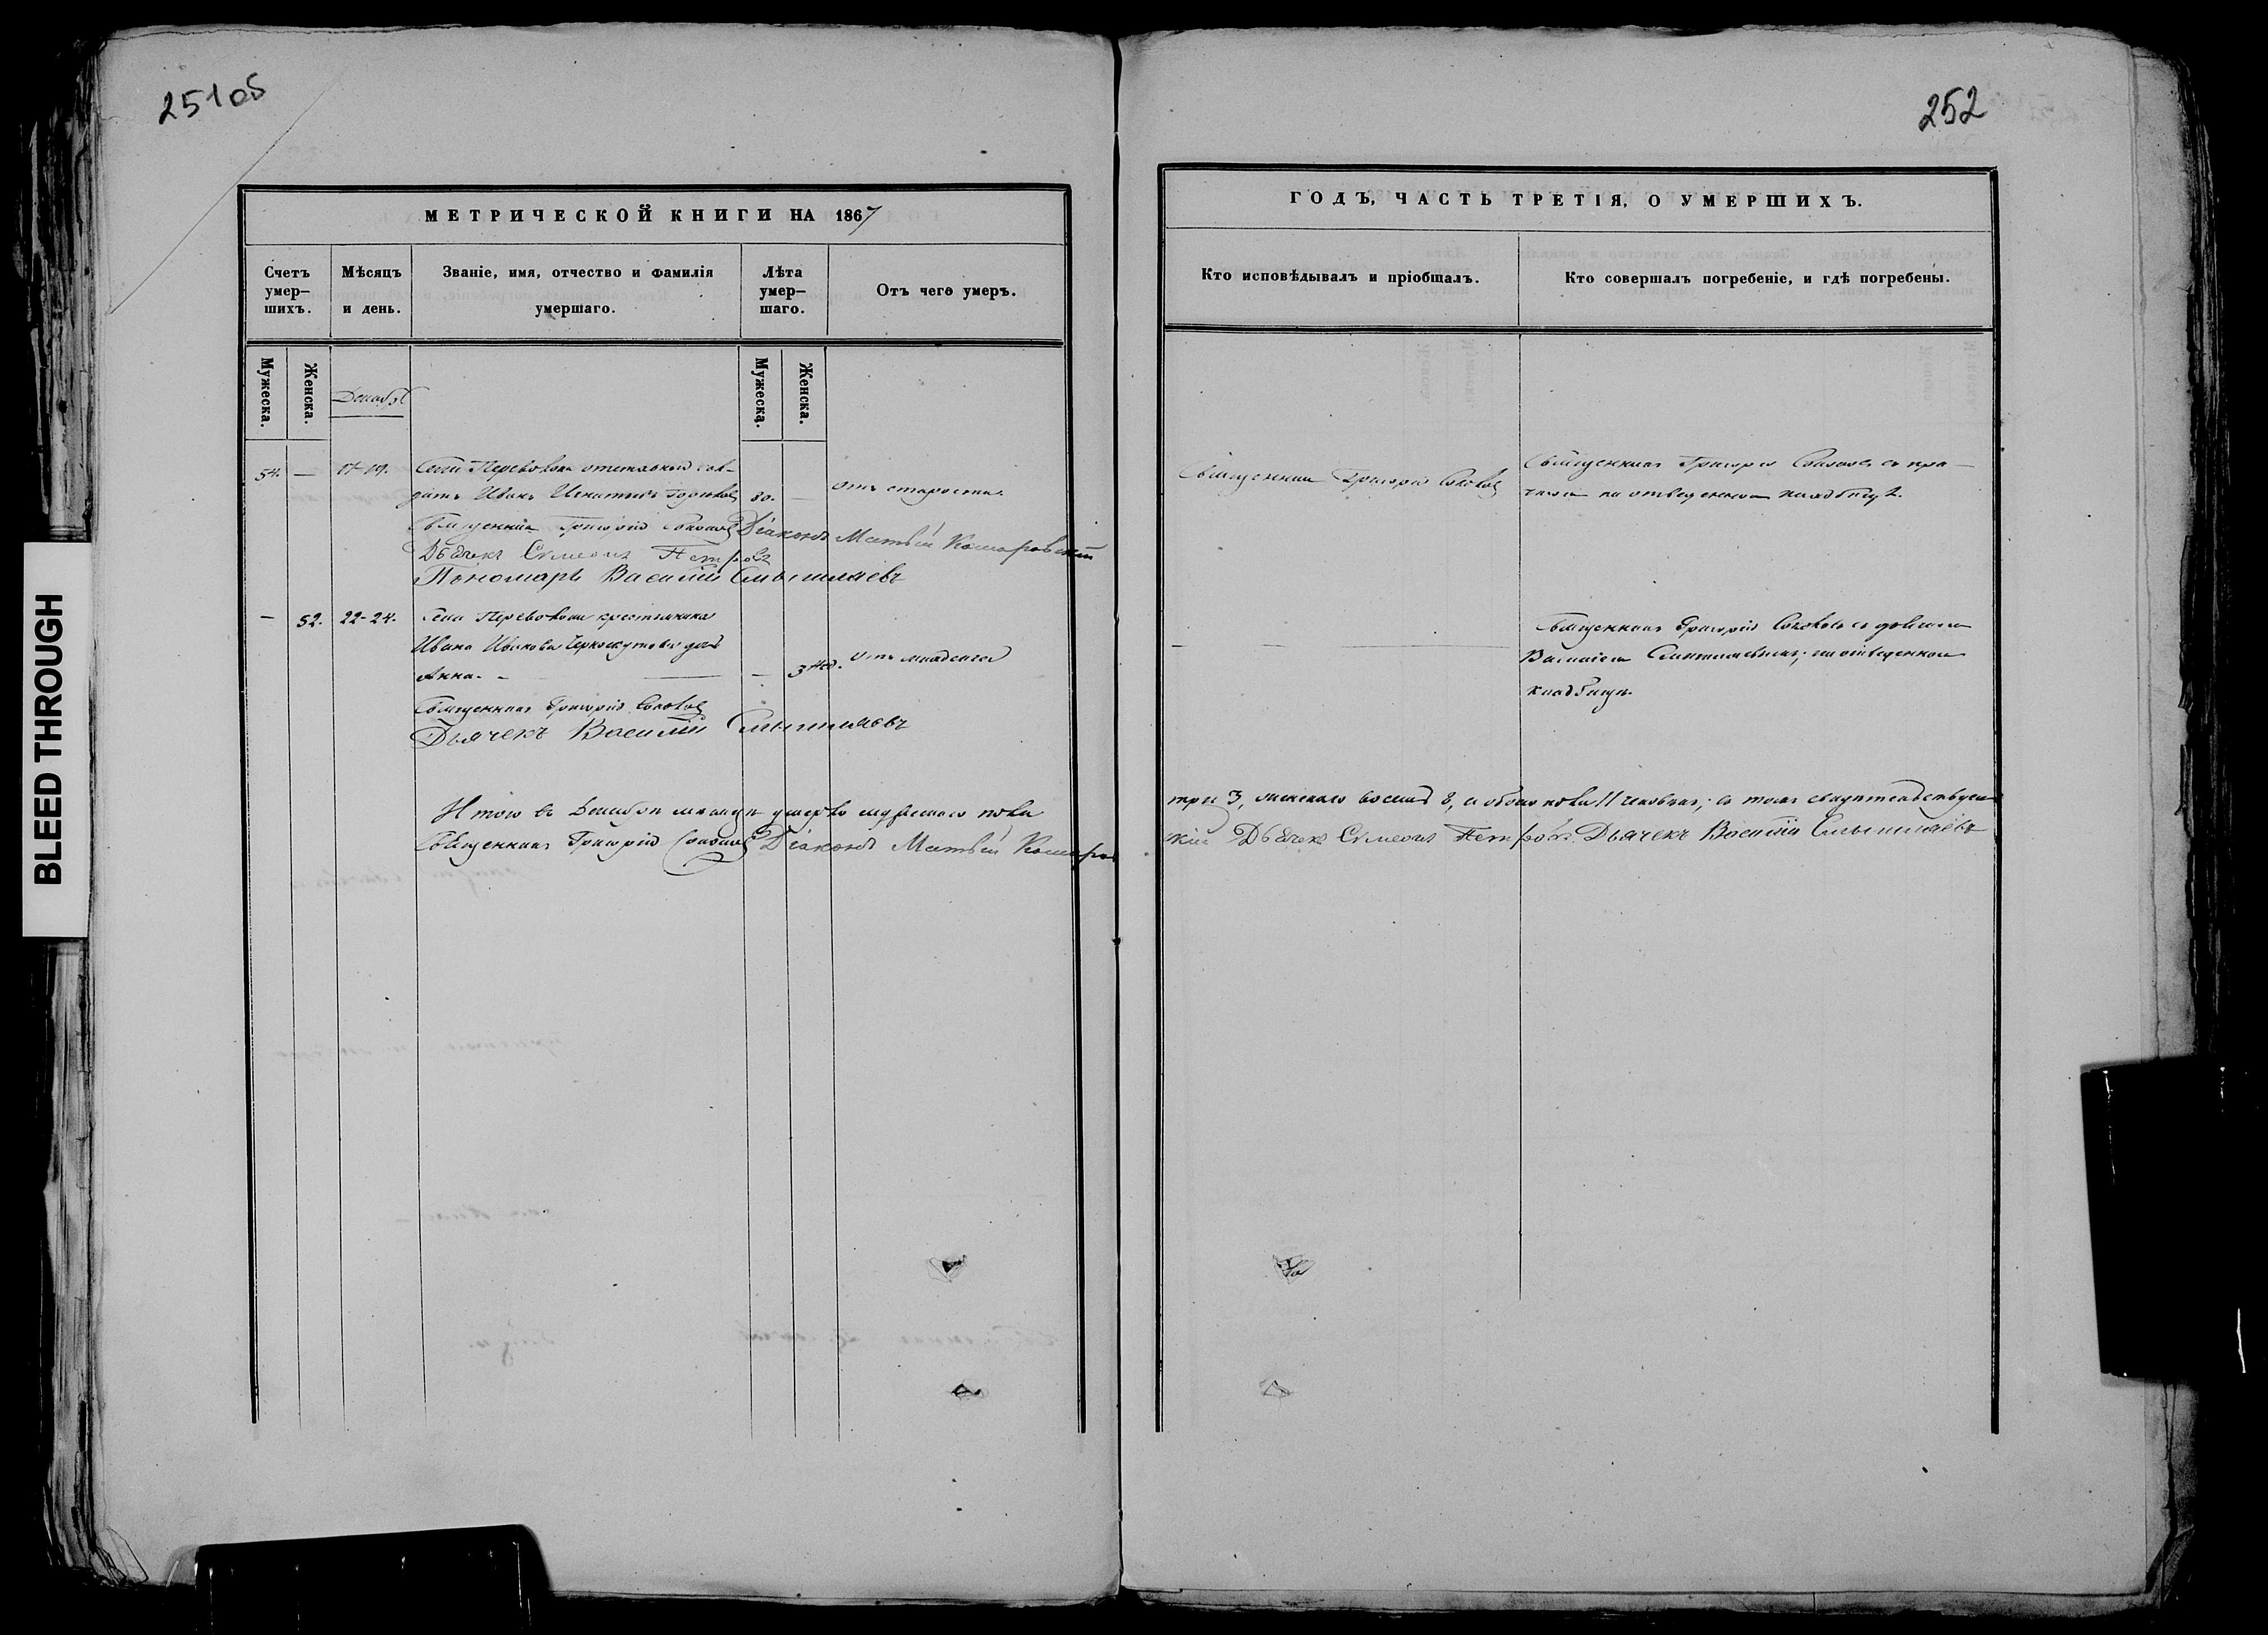 251об
МЕТРИЧЕСКОЙ КНИГИ НА 1867
Счетъ умер-шихъ.
Мѣсяцъ и день.
Званіе, имя, отчество и фамилія умершаго.
Лѣта умер-шаго.
Отъ чего умеръ.
Мужеска.
Женска.
Мужеска.
Женска.
Декабрь
54. — 17-19. Села Переволокъ отставной сол-
датъ Иванъ Игнатьевъ 80. — отъ старости.
Священникъ Григорій Соколовъ Діаконъ Матвѣй Комаровскій
Дьячекъ Сѵмеонъ Петровъ
Пономарь Василій Смышляевъ
— 52. 22-24. Села Переволокъ крестьянина
Ивана Иванова дочь
Анна. — — 3 нед. отъ младенч
Священникъ Григорій Соколовъ
Дьячекъ Василій Смышляевъ
Итого въ Декабрѣ мѣсяцѣ умерло мужескаго пола
Священникъ Григорій Соколовъ Діаконъ Матвѣй Комаров
252
ГОДЪ, ЧАСТЬ ТРЕТІЯ, О УМЕРШИХЪ.
Кто исповѣдывалъ и пріобщалъ.
Кто совершалъ погребеніе, и гдѣ погребены.
Священникъ Григорій Соколовъ
Священникъ Григорій Соколовъ съ при-
чтомъ на отведенномъ кладбищѣ.
Священникъ Григорій Соколовъ съ дьячкомъ
Василіемъ Смышляевымъ, на отведенномъ
кладбищѣ.
три 3, женскаго восемь 8, а обоего пола 11 человѣкъ; въ томъ свидѣтельствуемъ
скій Дьячекъ Сѵмеонъ Петровъ. Дьячекъ Василій Смышляевъ
BLEED THROUGH